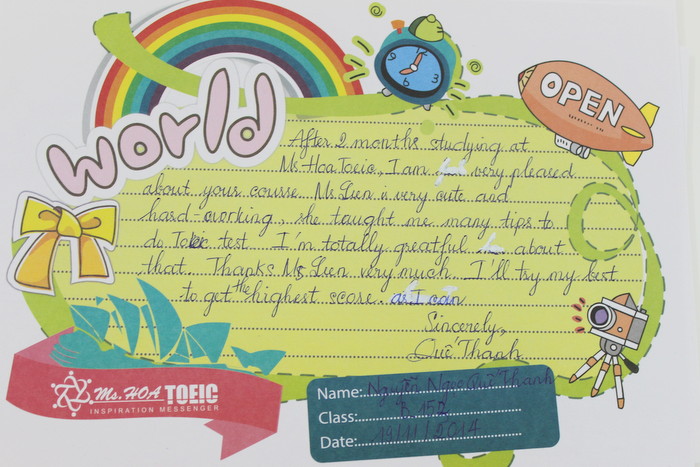 world
OPEN
After 2 months studying at
Ms Hoa Toeic, I am very pleased
about your course. Ms Lien is very cute and
hard-working, she taught me many tips to
do Toeic test. I'm totally greatful about
that. Thanks Ms Lien very much. I'll try my best
to get the highest score. as I can
Sincerely,
Quế Thanh
Ms. HOA TOEIC
INSPIRATION MESSENGER
Name: Nguyễn Ngọc Quế Thanh
Class: B 152
Date: 19/11/2014